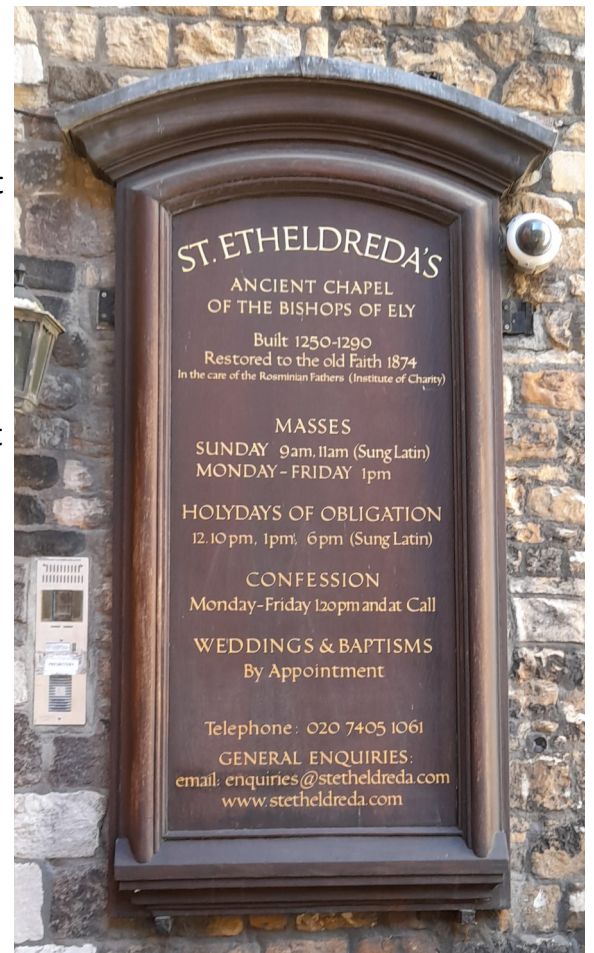 ST. ETHELDREDA'S
ANCIENT CHAPEL
OF THE BISHOPS OF ELY
Built 1250-1290
Restored to the old Faith 1874
In the care of the Rosminian Fathers (Institute of Charity)
MASSES
SUNDAY 9am, 11am (Sung Latin)
MONDAY-FRIDAY 1pm
HOLYDAYS OF OBLIGATION
12.10pm, 1pm, 6pm (Sung Latin)
CONFESSION
Monday-Friday 1.20pm and at Call
WEDDINGS & BAPTISMS
By Appointment
Telephone: 020 7405 1061
GENERAL ENQUIRIES:
email: enquiries@stetheldreda.com
www.stetheldreda.com